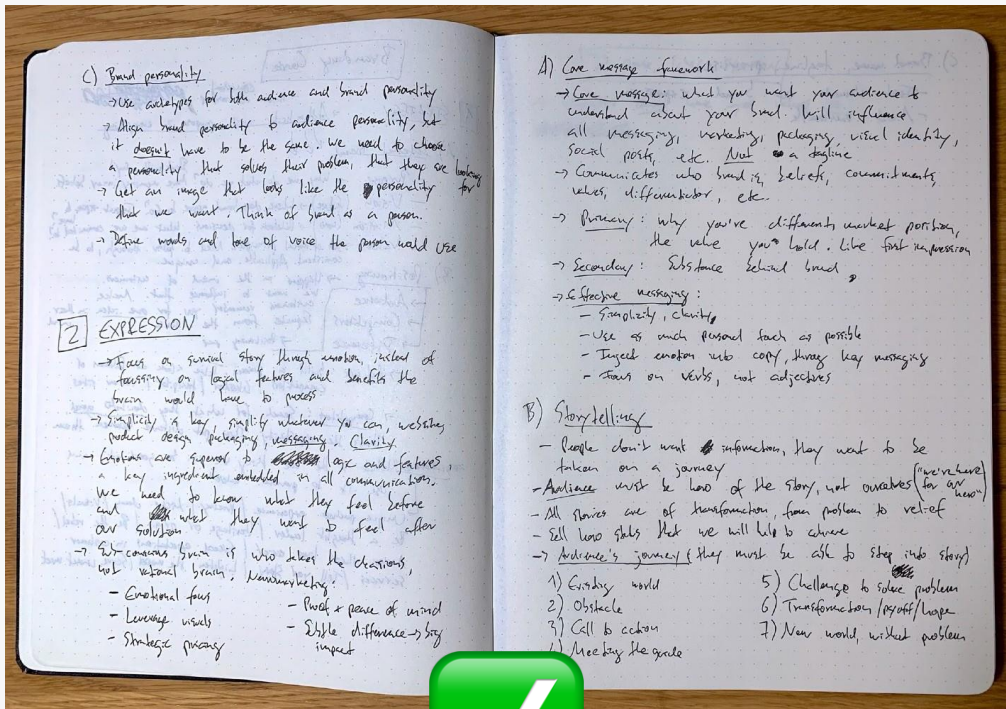 C) Brand personality
→ Use archetypes for both audience and brand personality
→ Align brand personality to audience personality, but
it doesn't have to be the same. We need to choose
a personality that solves their problem, that they are looking
for
→ Get an image that looks like the personality
that we want. Think of brand as a person.
→ Define words and tone of voice the person would use
2 EXPRESSION
→ Focus on survival story through emotion, instead of
focussing on logical features and benefits the
brain would have to process
→ Simplicity is key, simplify whatever you can, websites,
product design packaging, messaging. Clarity.
→ Emotions are superior to logic and features,
a key ingredient embedded in all communication.
We need to know what they feel before
and what they want to feel after
our solution
→ Sub-conscious brain is who takes the decisions,
not rational brain. Neuromarketing:
– Emotional focus
– Leverage visuals
– Strategic pricing
– Proof + peace of mind
– Subtle difference → big
impact
A) Core message framework
→ Core message: what you want your audience to
understand about your brand. Will influence
all messaging, marketing, packaging, visual identity,
social posts, etc. Not a tagline
→ Communicates who brand is, beliefs, commitments,
values, differentiator, etc.
→ Primary: why you're different, market position,
the value you hold. Like first impression
→ Secondary: Substance behind brand
→ Effective messaging:
– Simplicity, clarity
– Use as much personal touch as possible
– Inject emotion into copy, through key messaging
– Focus on verbs, not adjectives
B) Storytelling
– People don't want information, they want to be
taken on a journey
– Audience must be hero of the story, not ourselves ("we're here
for our
hero")
– All stories are of transformation, from problem to relief
– Sell hero status that we will help to achieve
→ Audience's journey (they must be able to step into story)
1) Existing world
2) Obstacle
3) Call to action
4) Meeting the guide
5) Challenge to solve problem
6) Transformation/payoff/hope
7) New world, without problem